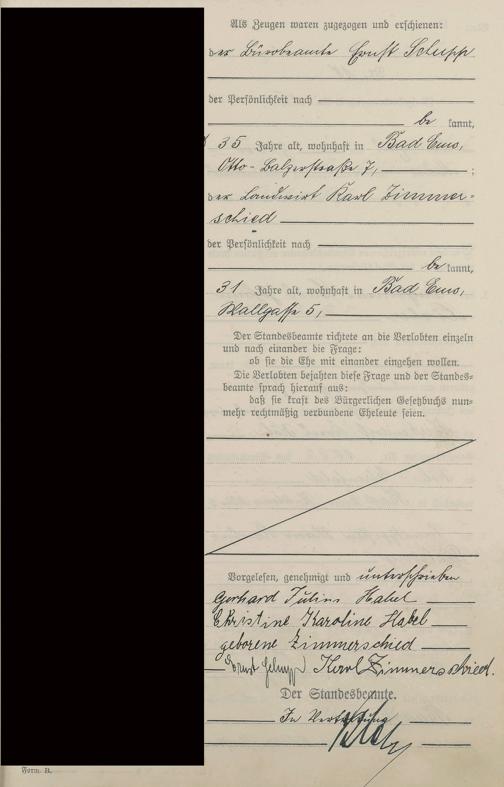 Als Zeugen waren zugezogen und erschienen:
der Bürobeamte Ernst Schupp
der Persönlichkeit nach
be kannt,
35 Jahre alt, wohnhaft in Bad Ems,
Otto-Balzerstraße 7, ;
der Landwirt Karl Zimmer-
schied
der Persönlichkeit nach
be kannt,
31 Jahre alt, wohnhaft in Bad Ems,
Wallgasse 5,
Der Standesbeamte richtete an die Verlobten einzeln
und nach einander die Frage:
ob sie die Ehe mit einander eingehen wollen.
Die Verlobten bejahten diese Frage und der Standes-
beamte sprach hierauf aus:
daß sie kraft des Bürgerlichen Gesetzbuchs nun-
mehr rechtmäßig verbundene Eheleute seien.
Vorgelesen, genehmigt und unterschrieben
Gerhard Julius Habel
Christine Karoline Habel
geborene Zimmerschied
Ernst Schupp Karl Zimmerschied.
Der Standesbeamte.
In Vertretung
Form. B.